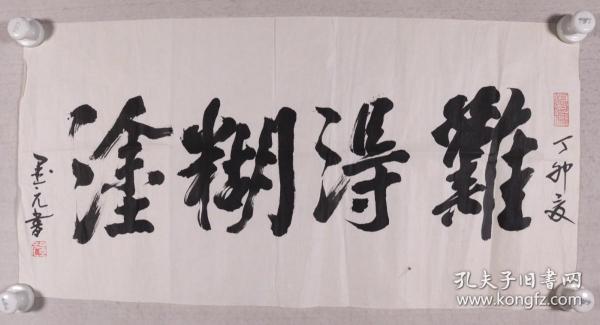 丁卯夏
難得糊塗
墨元書
孔夫子旧书网
www.kongfz.com